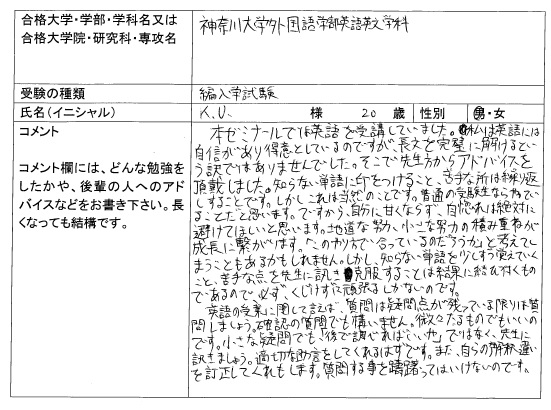 合格大学・学部・学科名又は
合格大学院・研究科・専攻名
神奈川大学外国語学部英語英文学科
受験の種類
編入学試験
氏名（イニシャル）
K.U. 様 20 歳 性別 男・女
コメント
コメント欄には、どんな勉強を
したかや、後輩の人へのアド
バイスなどをお書き下さい。長
くなっても結構です。
本ゼミナールでは英語を受講していました。私は英語には
自信があり得意としているのですが、長文を完璧に解けるとい
う訳ではありませんでした。そこで先生方からアドバイスを
頂戴しました。知らない単語に印をつけること、苦手な所は繰り返
しすることです。しかしこれは当然のことです。普通の受験生ならやってい
ることだと思います。ですから、自分に甘くならず、自惚れは絶対に
避けてほしいと思います。地道な努力、小さな努力の積み重ねが
成長に繋がります。「このやり方で合っているのだろうか」と考えてし
まうこともあるかもしれません。しかし、知らない単語を少しずつ覚えていく
こと、苦手な点を先生に訊き克服することは結果に結び付くもの
であるので、必ず、くじけずに頑張るしかないのです。
英語の授業に関して言えば、質問は疑問点が残っている限りは質
問しましょう。確認の質問でも構いません。微々たるものでもいいの
です。小さな疑問でも、「後で調べればいいか」ではなく、先生に
訊きましょう。適切な助言をしてくれるはずです。また、自らの解釈違い
を訂正してくれもします。質問する事を躊躇ってはいけないのです。